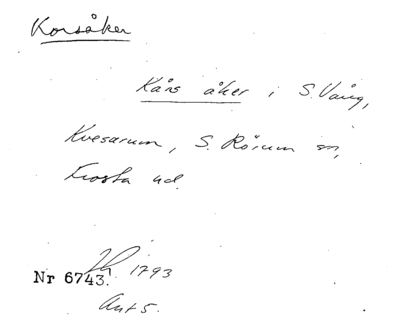 Korsåker
Kårs åker i S. Vång,
Kvesarum, S. Rörum sn,
Frosta hd.
Nr 6743. 1793
Ant 5.